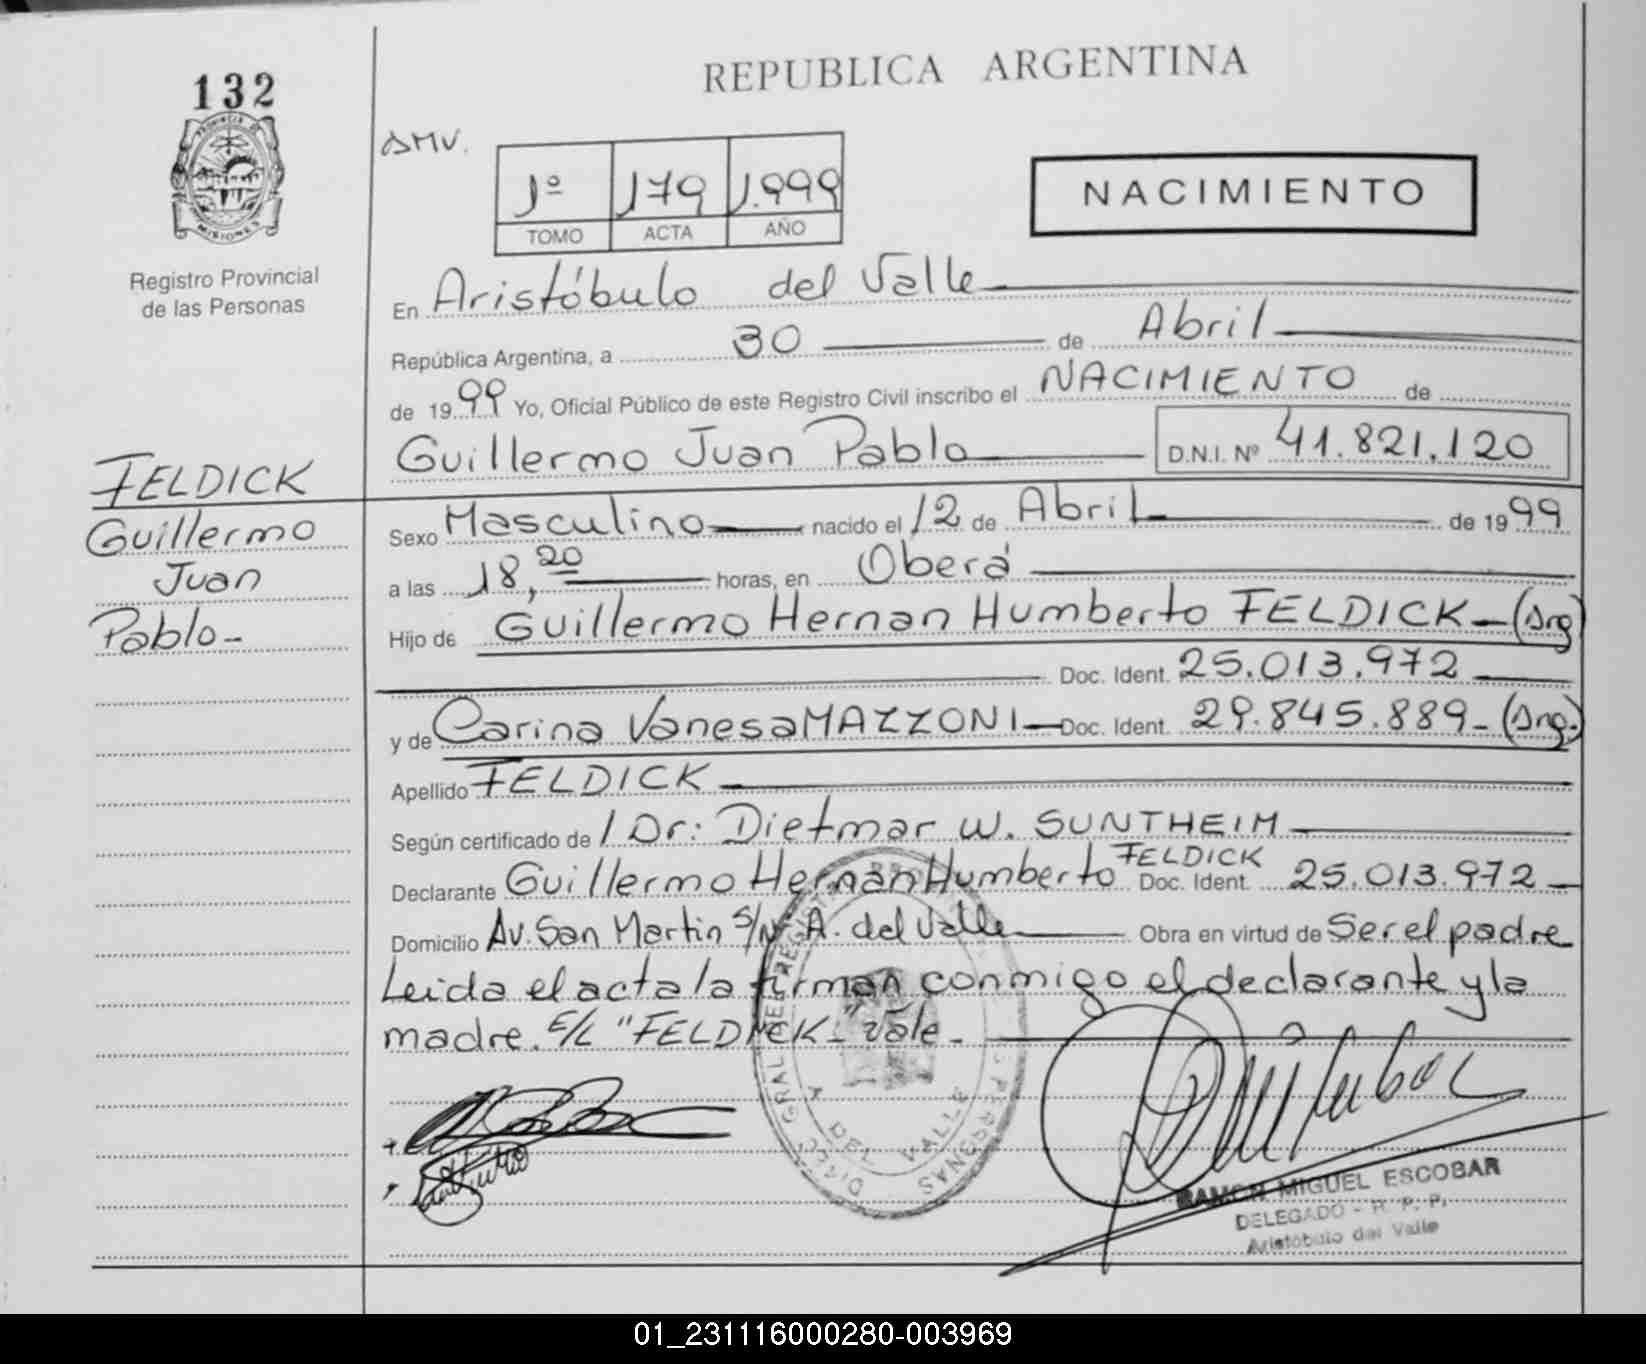 132
REPUBLICA ARGENTINA
PROVINCIA DE
MISIONES
Registro Provincial
de las Personas
AMV.
1º 179 1.999
TOMO ACTA AÑO
NACIMIENTO
En Aristóbulo del Valle
República Argentina, a 30 de Abril
de 1999 Yo, Oficial Público de este Registro Civil inscribo el NACIMIENTO de
Guillermo Juan Pablo D.N.I. Nº 41.821.120
FELDICK
Guillermo
Juan
Pablo-
Sexo Masculino nacido el 12 de Abril de 1999
a las 18,20 horas, en Oberá
Hijo de Guillermo Hernan Humberto FELDICK-(Arg)
Doc. Ident. 25.013.972
y de Carina Vanesa MAZZONI-Doc. Ident. 29.845.889-(Arg.)
Apellido FELDICK
Según certificado de / Dr: Dietmar W. SUNTHEIM
Declarante Guillermo Hernán Humberto FELDICK Doc. Ident. 25.013.972
Domicilio Av. San Martin S/N A. del Valle Obra en virtud de Ser el padre
Leida el acta la firman conmigo el declarante y la
madre. E/L "FELDICK-" Vale-
RAMON MIGUEL ESCOBAR
DELEGADO - R. P. P.
Aristóbulo del Valle
01_231116000280-003969